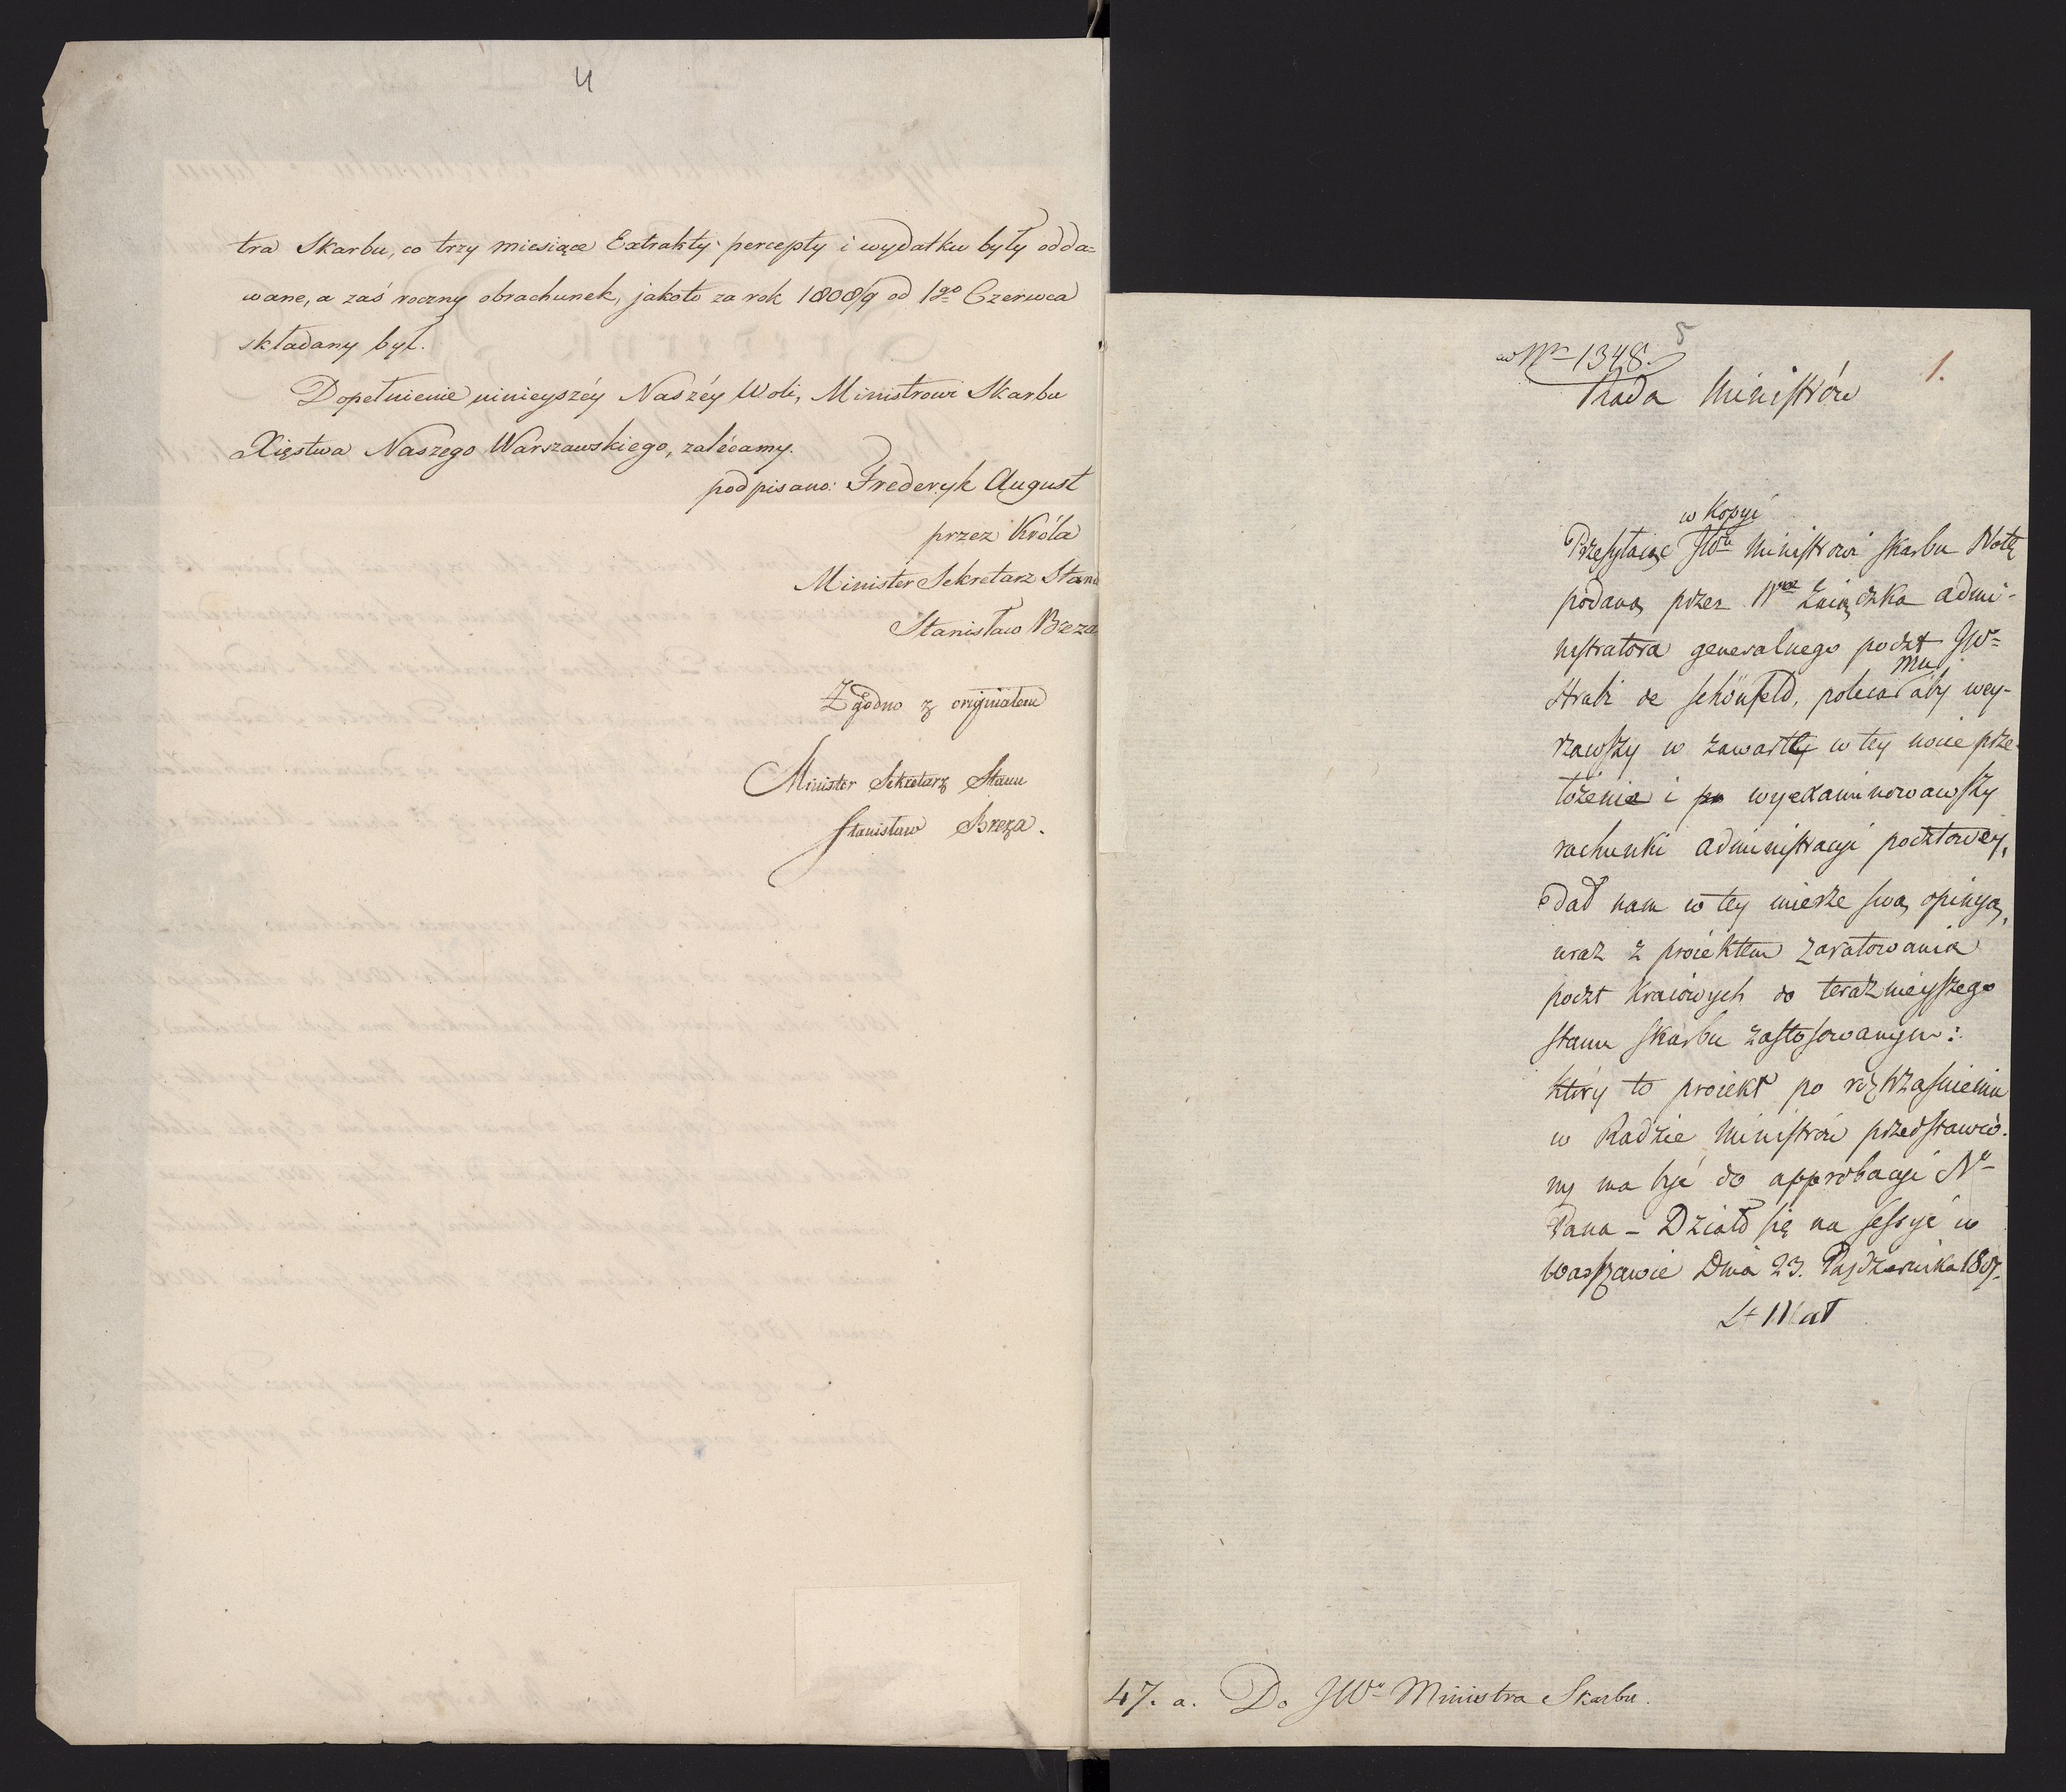 4
tra Skarbu, co trzy miesiące Extrakty percepty i wydatku były odda=
wane, a zaś roczny obrachunek, jakoto za rok 1808/9 od 1go Czerwca
składany był.
Dopełnienie ninieyszéy Naszéy Woli, Ministrowi Skarbu
Xięstwa Naszego Warszawskiego, zalécamy.
podpisano: Frederyk August
przez Króla
Minister Sekretarz Stanu
Stanisław Breza
Zgodno z originałem
Minister Sekretarz Stanu
Stanisław Breza.
5
ad Nr 1348.
1.
Rada Ministrów
w Kopyi
Przesyłaiąc JWu Ministrowi Skarbu Notę
podaną przez Wgo Zaiączka admi-
nistratora generalnego poczt JWo
Hrabi de Schönfeld, poleca mu aby wey-
rzawszy w zawarte w tey nocie prze-
łożenie i wyexaminowawszy
rachunki administracyi pocztowey,
dał nam w tey mierze swą opinyą,
wraz z proiektem zaratowania
poczt Kraiowych do teraznieyszego
stanu skarbu zastosowanym:
który to proiekt po roztrząśnieniu
w Radzie Ministrów przedstawio-
ny ma być do approbacyi No
Pana - Działo się na sessyi w
Warszawie Dnia 23. Pazdziernika 1807.
47. a. Do JWo Ministra Skarbu.